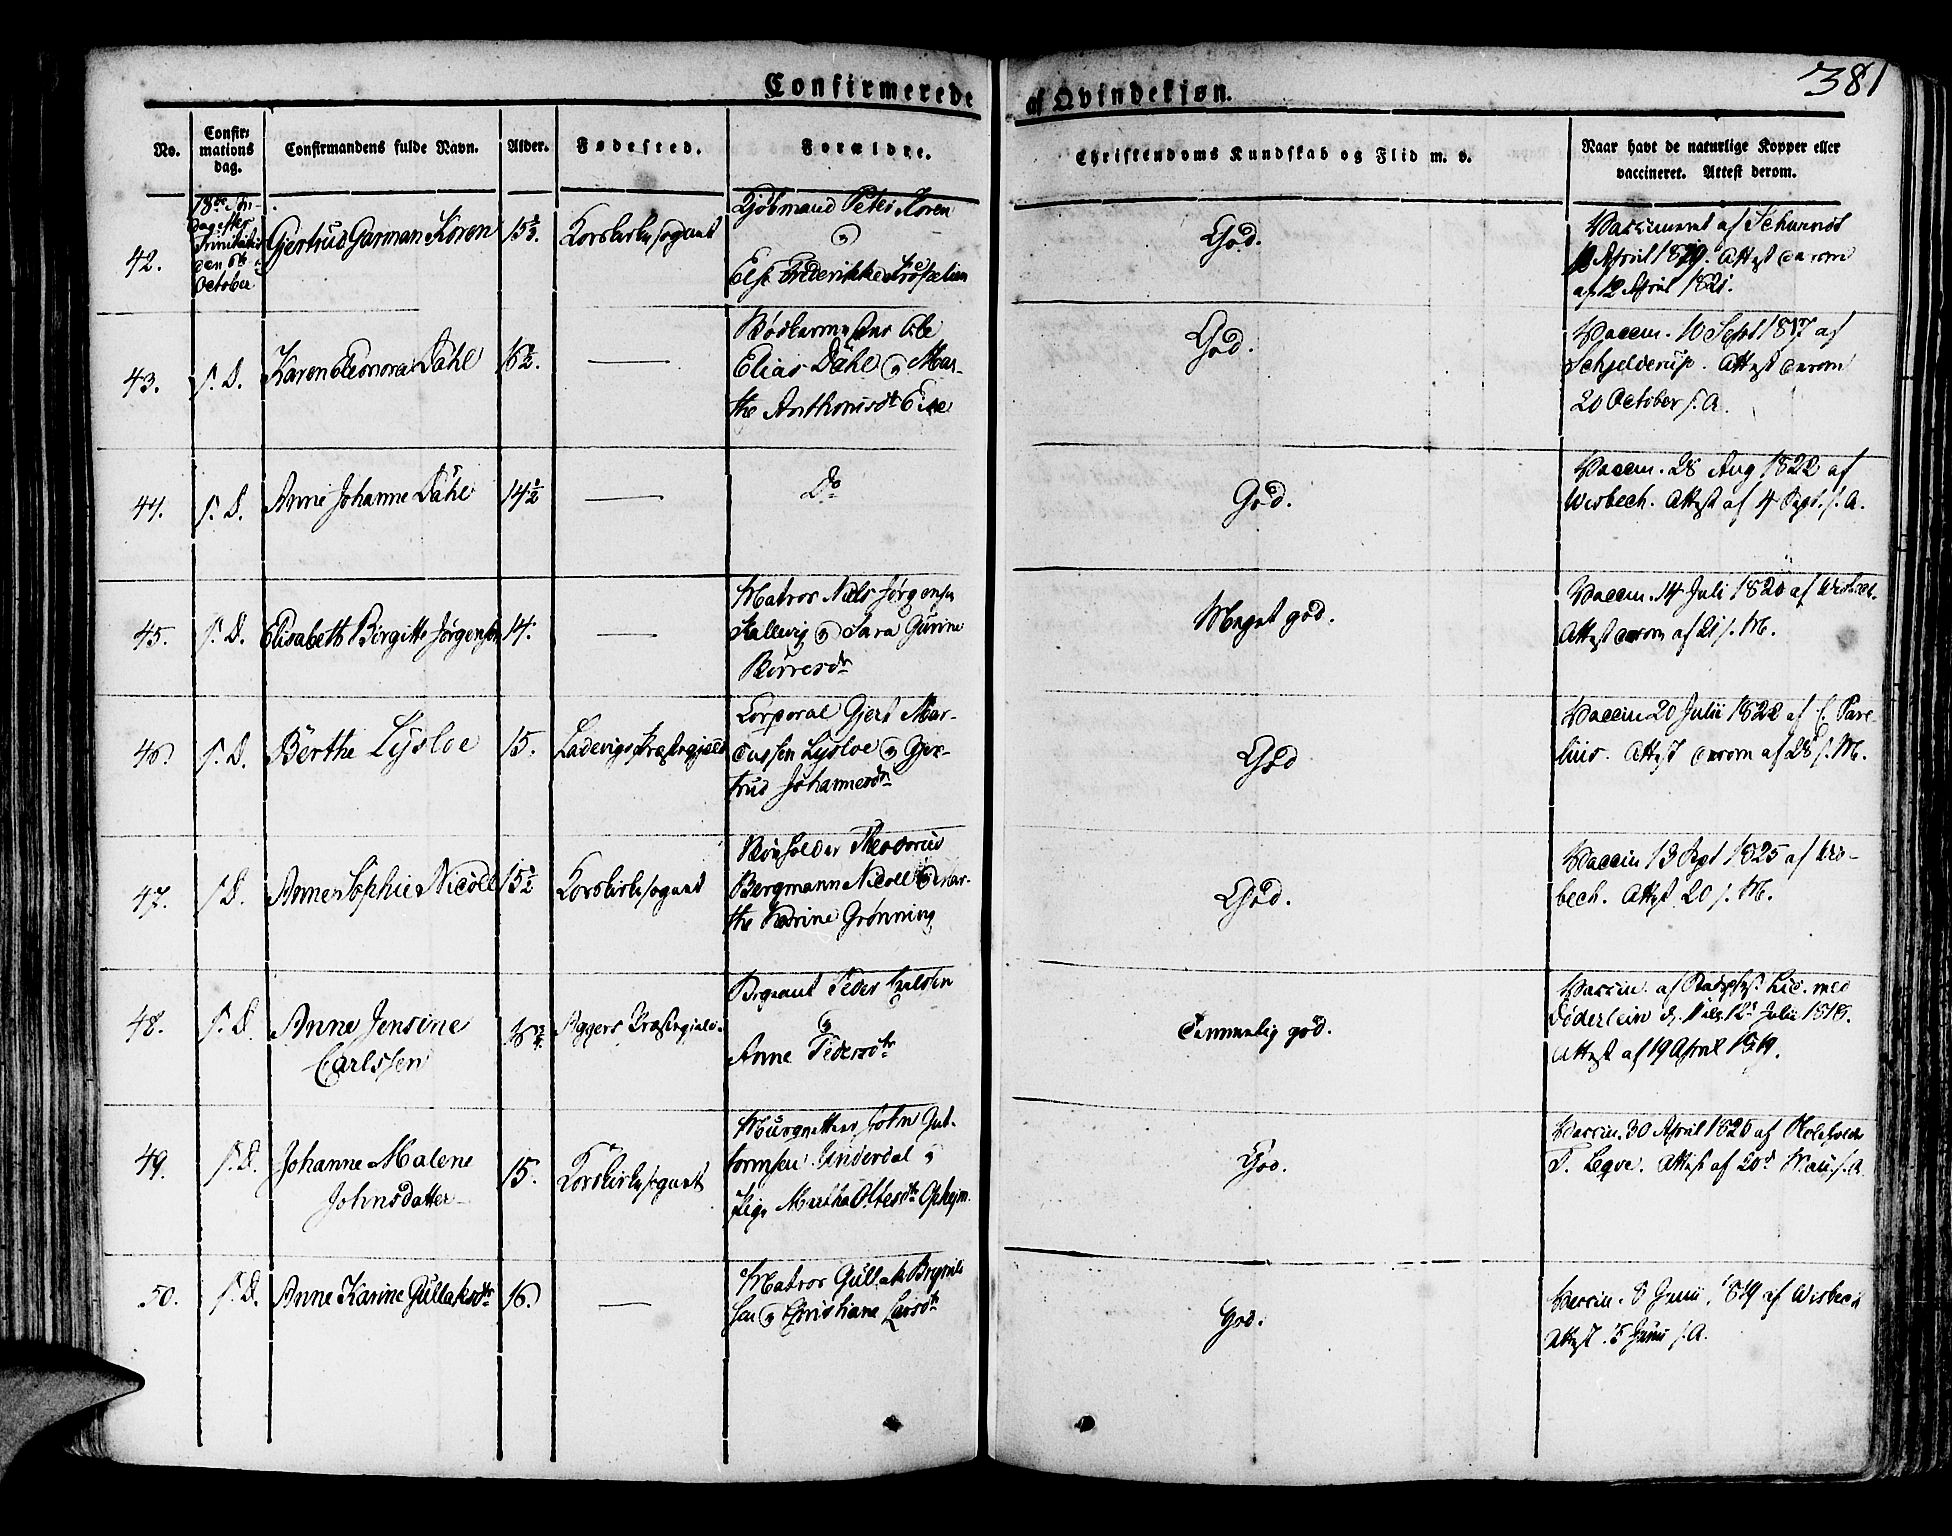 Confirmerede
af Qvindekjøn.
381
No.
Confir=
mations
dag.
Confirmandens fulde Navn.
Alder.
Fødested.
Forældre.
Christendoms Kundskab og Flid m. v.
Naar havt de naturlige Kopper eller
vaccineret. Attest derom.
42.
18de Søn-
dag efter
Trinitatis
den 6te
October
Gjertrud Garman Koren
15½.
Korskirkesognet
Kjøbmand Peter Koren
og
Else Frederikke
God.
Vaccineret af Schwindt
April 1819. Attest derom
af 12 April 1821.
43.
s. D.
Karen Eleonora Dahl
16½.
Bødkermester Ole
Elias Dahl og Mar-
the Anthonisdtr Eide
God.
Vaccin. 10 Sept 1817 af
Schjelderup. Attest derom
20 October s. A.
44.
s. D.
Anne Johanne Dahl
14½
Do
God.
Vaccin. 28 Aug 1822 af
Wisbech. Attest af 4 Sept. s. A.
45.
s. D.
Elisabeth Birgitte Jørgensen
14.
Matros Niels Jørgensen
og Sara Gurine
Børresdtr
Meget god.
Vaccin. 14 Juli 1820 af Wisbech.
Attest derom af 21 s. M.
46.
s. D.
Berthe Lysloe
15.
Ladevigs Præstegjeld
Corporal Gjert Mar-
cussen Lysloe og Gjer-
trud Johannesdtr
God
Vaccin 20 Julii 1822 af C. Pare-
lius. Attest derom af 28 s. M.
47.
s. D.
Anne Sophie Nicoll
15½
Korskirkesognet
Theodorus
Bergmann Nicoll og Mar-
the Karine Grønning
God.
Vaccin 13 Sept 1825 af Wis-
bech. Attest 20 s. M.
48.
s. D.
Anne Jensine
Carlssen
16¾.
Aggers Præstegjeld.
Sergeant Peder Carlsen
og
Anne Pedersdtr
Temmelig god.
Vaccin. af med
Døderlein 12te Julii 1818.
Attest af 19 April 1819.
49.
s. D.
Johanne Malene
Johnsdatter
15.
Korskirkesognet
Muurmester John Gut-
tormsen Underdal og
Pige Martha Ottesdtr
God.
Vaccin. 30 April 1820 af
T. Legve. Attest af 20de Maii s. A.
50.
s. D.
Anne Karine Gullaksdtr
16.
Matros Gullak Brynils
sen og Christiane Larsdtr
god.
Vaccin. Junii 1819 af Wisbech
Attest. 5 Junii s. A.